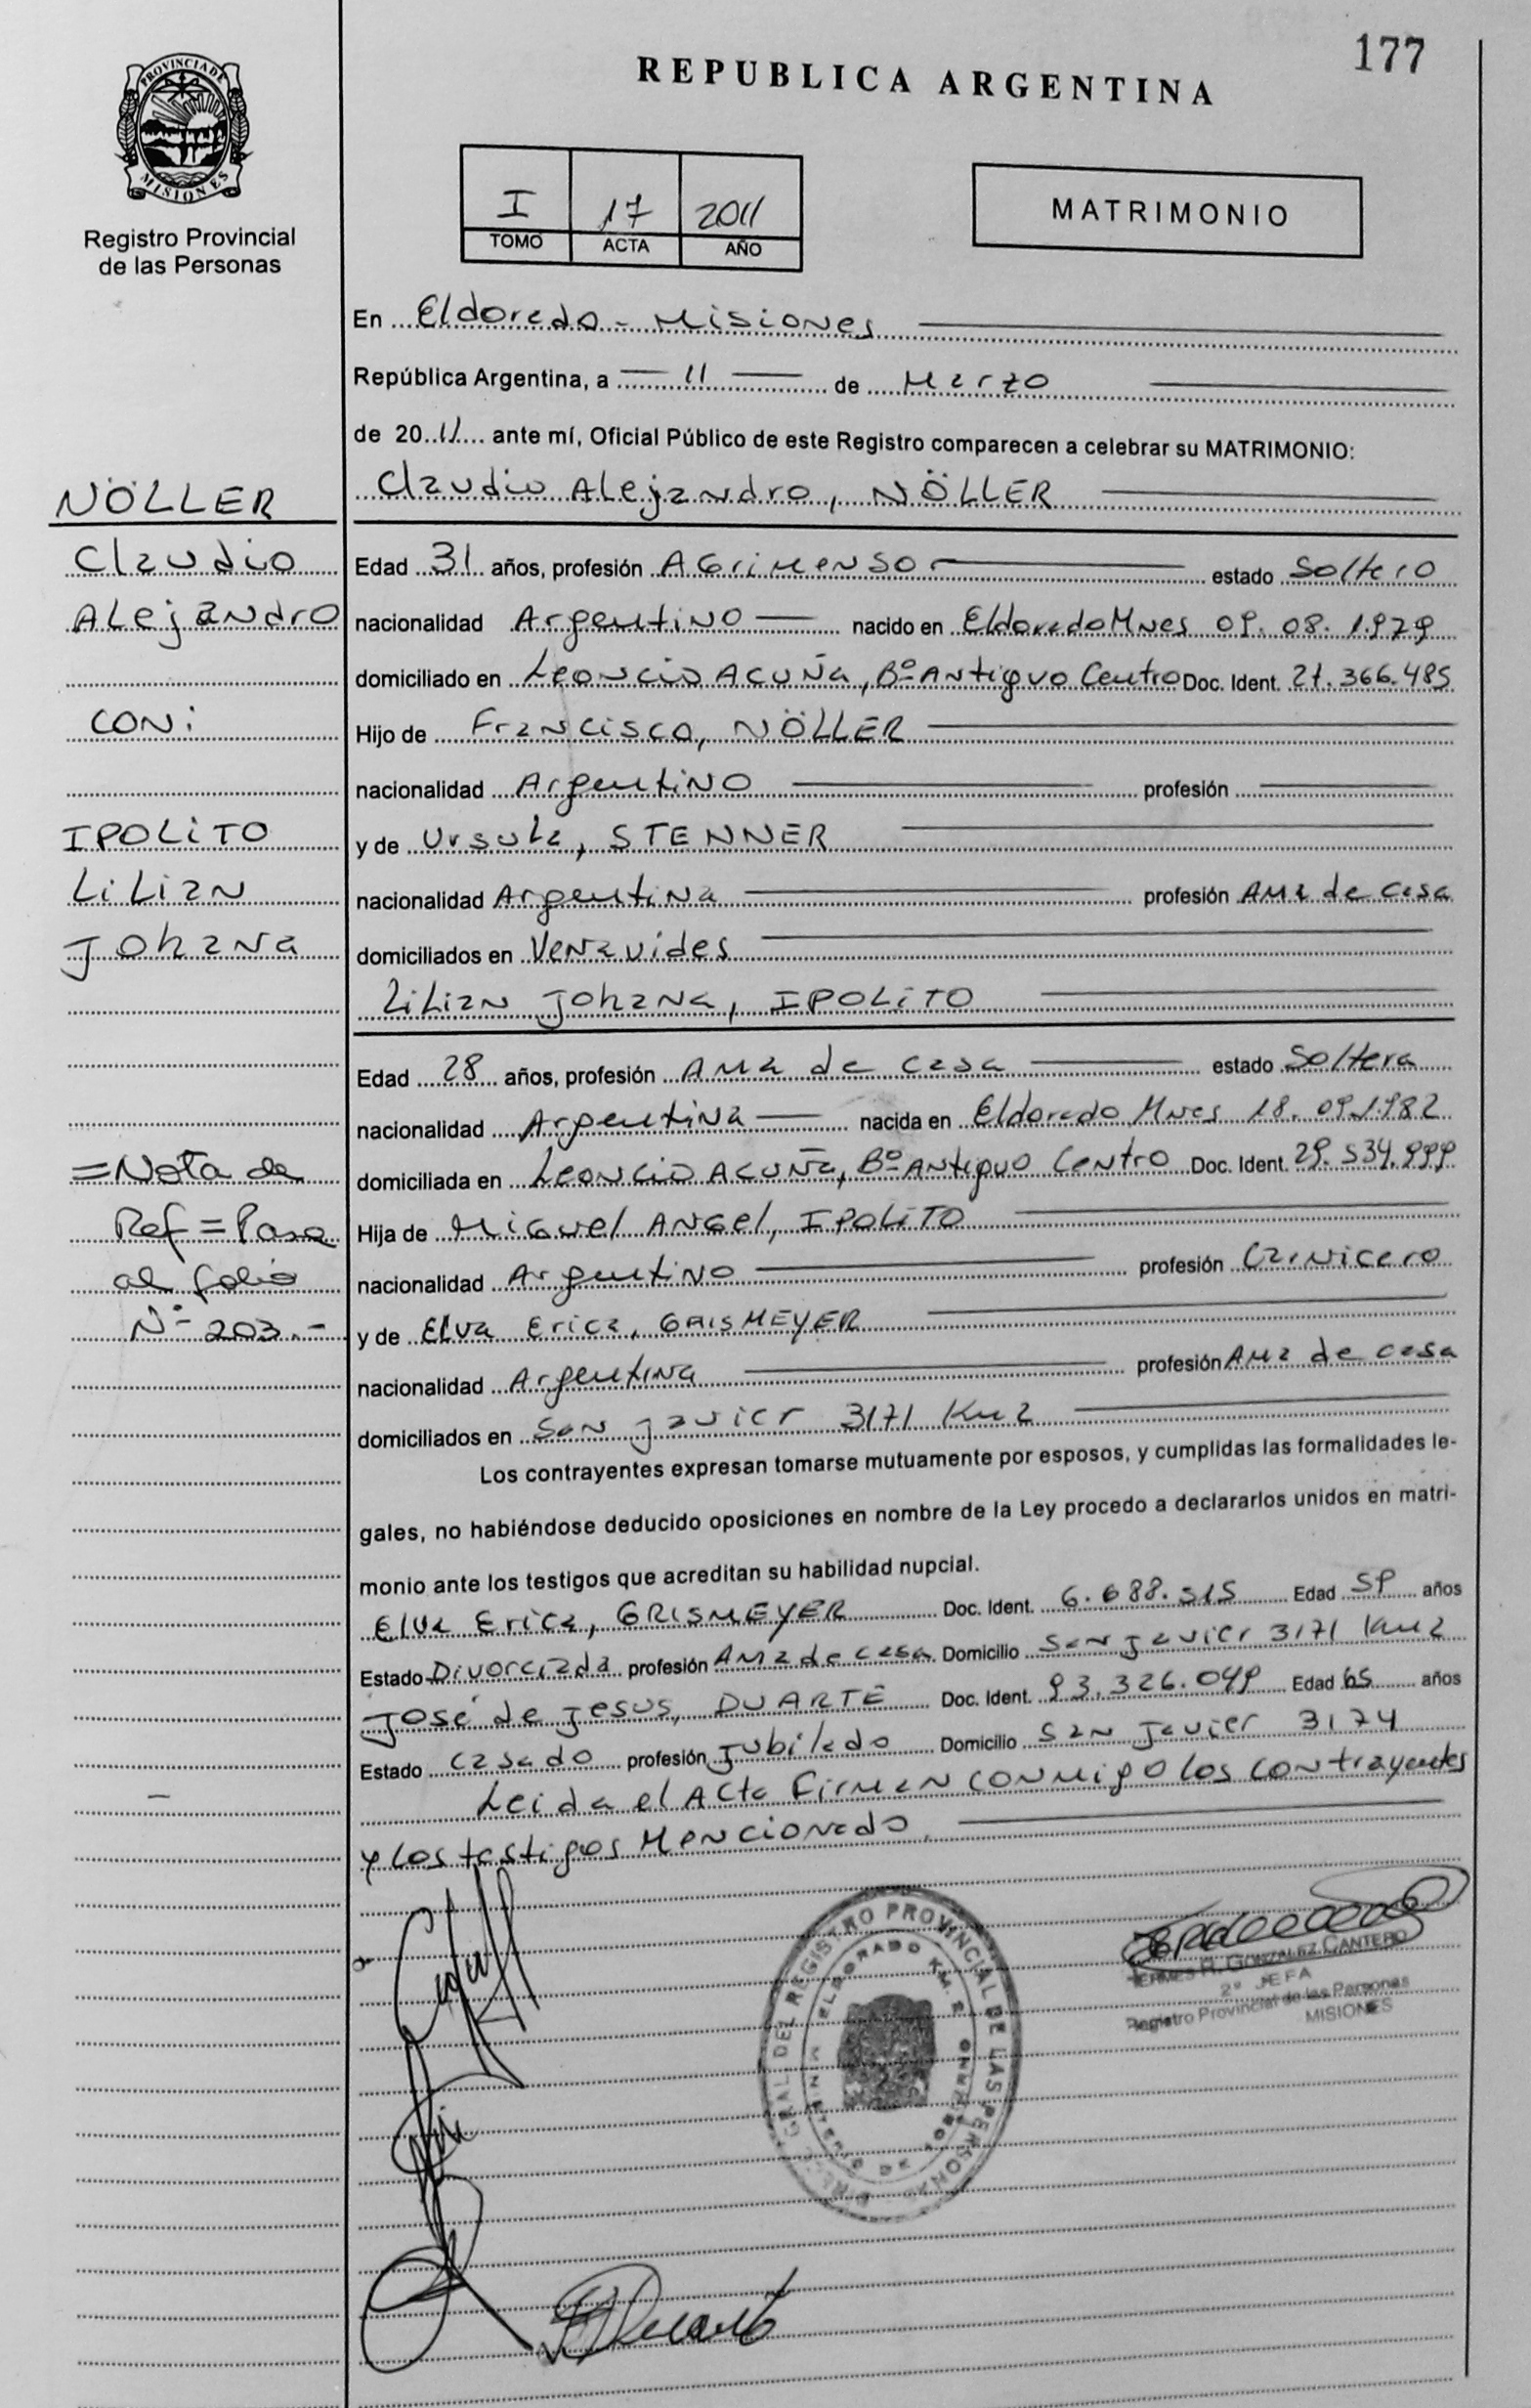 177
REPUBLICA ARGENTINA
PROVINCIA DE
MISIONES
Registro Provincial
de las Personas
I 17 2011
TOMO ACTA AÑO
MATRIMONIO
En Eldorado - Misiones
República Argentina, a 11 de Marzo
de 2011 ante mí, Oficial Público de este Registro comparecen a celebrar su MATRIMONIO:
Claudio Alejandro, NÖLLER
Edad 31 años, profesión Agrimensor estado Soltero
nacionalidad Argentino nacido en Eldorado Mnes 09.08.1.979
domiciliado en Leoncio Acuña, Bº Antiguo Centro Doc. Ident. 27.366.485
Hijo de Francisco, NÖLLER
nacionalidad Argentino profesión
y de Ursula, STENNER
nacionalidad Argentina profesión Ama de casa
domiciliados en Venavides
Lilian Johana, IPOLITO
Edad 28 años, profesión Ama de casa estado Soltera
nacionalidad Argentina nacida en Eldorado Mnes 18.09.1.982
domiciliada en Leoncio Acuña, Bº Antiguo Centro Doc. Ident. 29.534.999
Hija de Miguel Angel, IPOLITO
nacionalidad Argentino profesión Carnicero
y de Elva Erica, GRISMEYER
nacionalidad Argentina profesión Ama de casa
domiciliados en San Javier 3171 Km 2
Los contrayentes expresan tomarse mutuamente por esposos, y cumplidas las formalidades le-
gales, no habiéndose deducido oposiciones en nombre de la Ley procedo a declararlos unidos en matri-
monio ante los testigos que acreditan su habilidad nupcial.
Elva Erica, GRISMEYER Doc. Ident. 6.688.515 Edad 59 años
Estado Divorciada profesión Ama de casa Domicilio San Javier 3171 Km 2
José de Jesus, DUARTE Doc. Ident. 93.326.049 Edad 65 años
Estado Casado profesión Jubilado Domicilio San Javier 3174
Leida el Acta Firman conmigo los contrayentes
y los testigos Mencionado.
NÖLLER
Claudio
Alejandro
CON:
IPOLITO
Lilian
Johana
=Nota de
Ref=Pasa
al folio
Nº 203.-
GRAL DEL REGISTRO PROVINCIAL DE LAS PERSONAS
ELDORADO KM.
R. GONZALEZ CANTERO
2ª JEFA
Registro Provincial de las Personas
MISIONES
Duarte